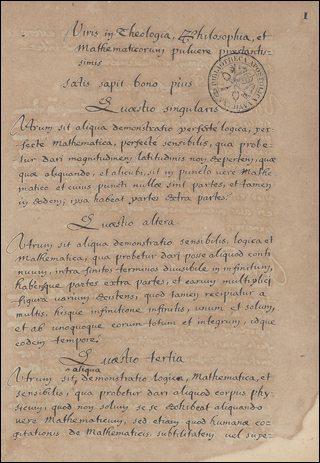 1
Viris in Theologia, Philosophia, et
Mathematicorum pulvere præstantis-
simis
satis sapit bono pius
BIBLIOTHECA APOSTOLICA VATICANA
Quæstio singularis
Utrum sit aliqua demonstratio perfecte logica, per-
fecte Mathematica, perfecte sensibilis, qua probe-
tur dari magnitudinem latitudinis non expertem, quæ
quæ aliquando, et alicubi sit in puncto vere Mathe-
matico et cuius puncti nullæ sint partes, et tamen
in eodem, ipsa habeat partes extra partes.
Quæstio altera.
Utrum sit aliqua demonstratio sensibilis, logica et
Mathematica, qua probetur dari posse aliquod conti
nuum, intra finitos terminos divisibile in infinitum,
habensque partes extra partes, et earum multiplici
figura varium existens, quod tamen recipiatur a
multis, hisque infinitione infinitis, unum et solum,
et ab unoquoque eorum totum et integrum, idque
eodem tempore.
Quæstio tertia
aliqua
Utrum sit demonstratio logica, Mathematica, et
sensibilis, qua probetur dari aliquod corpus phy-
sicum, quod non solum se se exhibeat aliquando
vere Mathematicum, sed etiam quod humanæ co-
gitationis de Mathematicis subtilitatem vel supe-